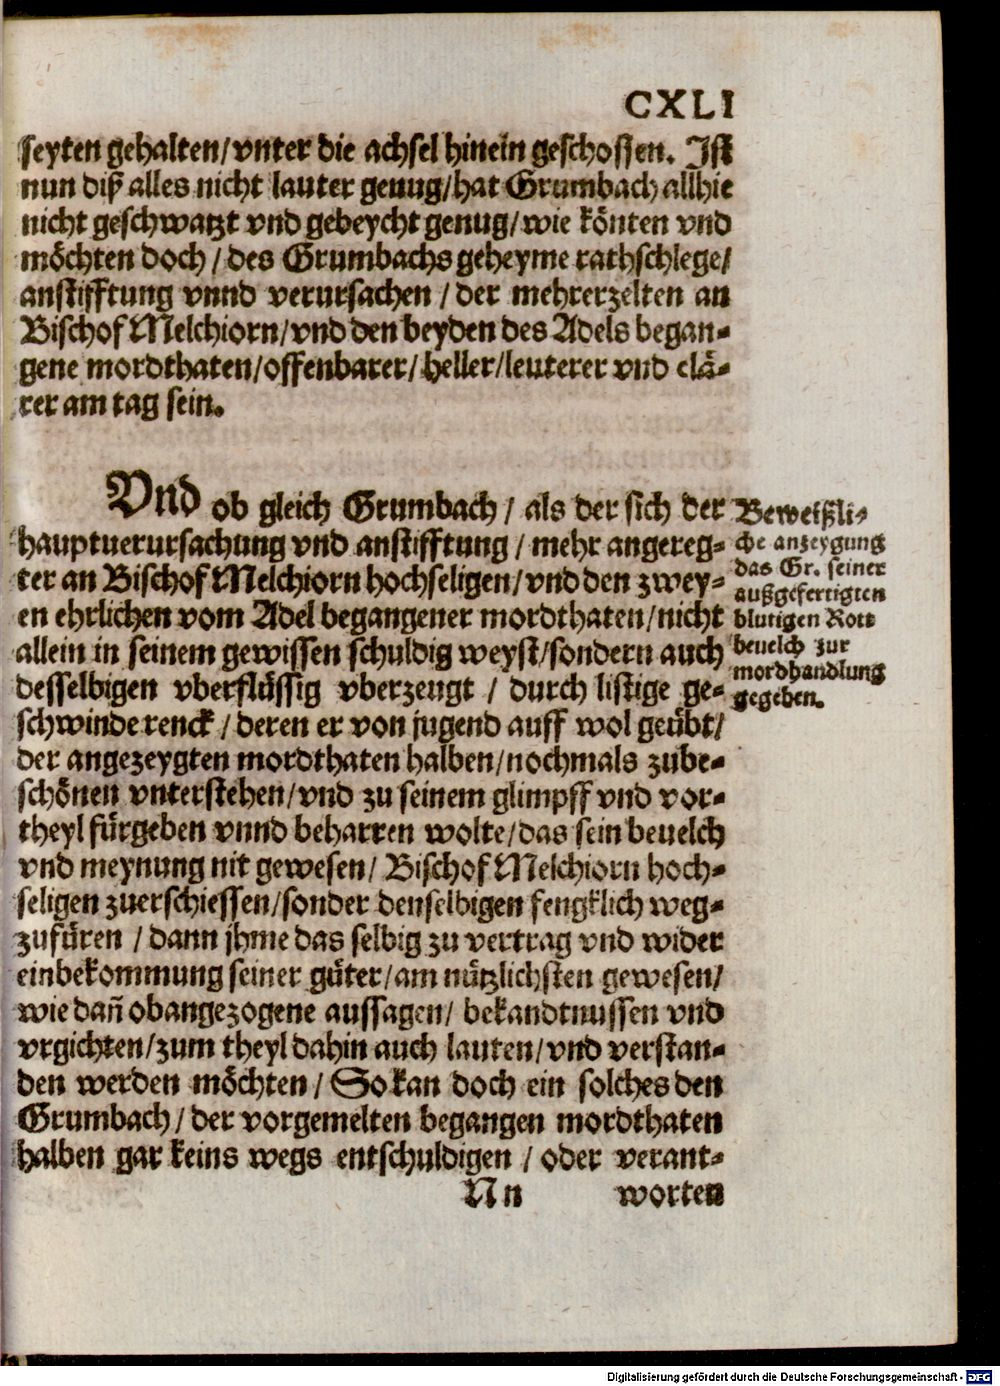 CXLI
seyten gehalten/vnter die achsel hinein geschossen. Ist
nun diß alles nicht lauter genug/hat Grumbach allhie
nicht geschwatzt vnd gebeycht genug/wie könten vnd
möchten doch/des Grumbachs geheyme rathschlege/
anstifftung vnnd verursachen/der mehrerzelten an
Bischof Melchiorn/vnd den beyden des Adels began-
gene mordthaten/offenbarer/heller/leuterer vnd clä-
rer am tag sein.
Vnd ob gleich Grumbach/als der sich der
hauptuerursachung vnd anstifftung/mehr angereg-
ter an Bischof Melchiorn hochseligen/vnd den zwey-
en ehrlichen vom Adel begangener mordthaten/nicht
allein in seinem gewissen schuldig weyst/sondern auch
desselbigen vberflüssig vberzeugt/durch listige ge-
schwinde renck/deren er von jugend auff wol geübt/
der angezeygten mordthaten halben/nochmals zube-
schönen vnterstehen/vnd zu seinem glimpff vnd vor-
theyl fürgeben vnnd beharren wolte/das sein beuelch
vnd meynung nit gewesen/Bischof Melchiorn hoch-
seligen zuerschiessen/sonder denselbigen fengklich weg-
zufüren/dann jhme das selbig zu vertrag vnd wider
einbekommung seiner güter/am nützlichsten gewesen/
wie dañ obangezogene aussagen/bekandtnussen vnd
vrgichten/zum theyl dahin auch lauten/vnd verstan-
den werden möchten/So kan doch ein solches den
Grumbach/der vorgemelten begangen mordthaten
halben gar keins wegs entschuldigen/oder verant-
Nn worten
Beweißli-
che anzeygung
das Gr. seiner
außgefertigten
blutigen Rott
beuelch zur
mordhandlung
gegeben.
Digitalisierung gefördert durch die Deutsche Forschungsgemeinschaft - DFG